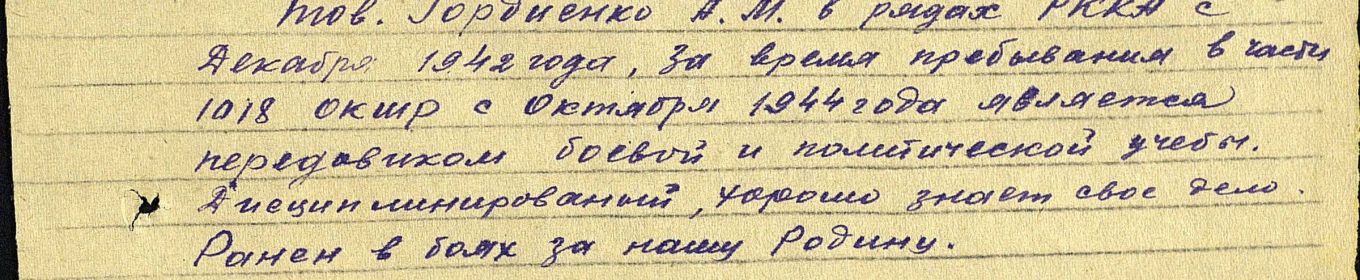 тов. Гордиенко А.М. в рядах РККА с
Декабря 1942 года, За время пребывания в части
1018 окшр с Октября 1944 года является
передовиком боевой и политической учебы.
Дисциплинированый, хорошо знает свое дело.
Ранен в боях за нашу Родину.